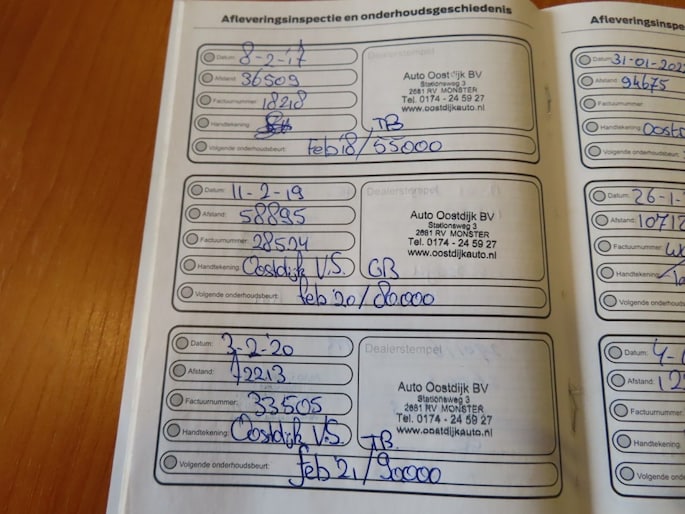 Afleveringsinspectie en onderhoudsgeschiedenis
Datum: 8-2-'17
Afstand: 36509
Factuurnummer: 18218
Handtekening:
Dealerstempel
Auto Oostdijk BV
Stationsweg 3
2681 RV MONSTER
Tel. 0174 - 24 59 27
www.oostdijkauto.nl
TB
Volgende onderhoudsbeurt: feb '18 / 55000
Datum: 11-2-19
Afstand: 58895
Factuurnummer: 28524
Handtekening: Oostdijk V.S.
Dealerstempel
Auto Oostdijk BV
Stationsweg 3
2681 RV MONSTER
Tel. 0174 - 24 59 27
www.oostdijkauto.nl
GB
Volgende onderhoudsbeurt: feb '20 / 80000
Datum: 3-2-'20
Afstand: 72213
Factuurnummer: 33505
Handtekening: Oostdijk V.S.
Dealerstempel
Auto Oostdijk BV
Stationsweg 3
2681 RV MONSTER
Tel. 0174 - 24 59 27
www.oostdijkauto.nl
TB
Volgende onderhoudsbeurt: feb '21 / 90000
Afleveringsinspe
Datum: 31-01-202
Afstand: 94675
Factuurnummer
Handtekening: Oost
Volgende onderhoudsbeurt:
Datum: 26-1-
Afstand: 10712
Factuurnummer:
Handtekening:
Volgende onderhoudsbeurt:
Datum: 4-
Afstand: 12
Factuurnummer:
Handtekening:
Volgende onderh